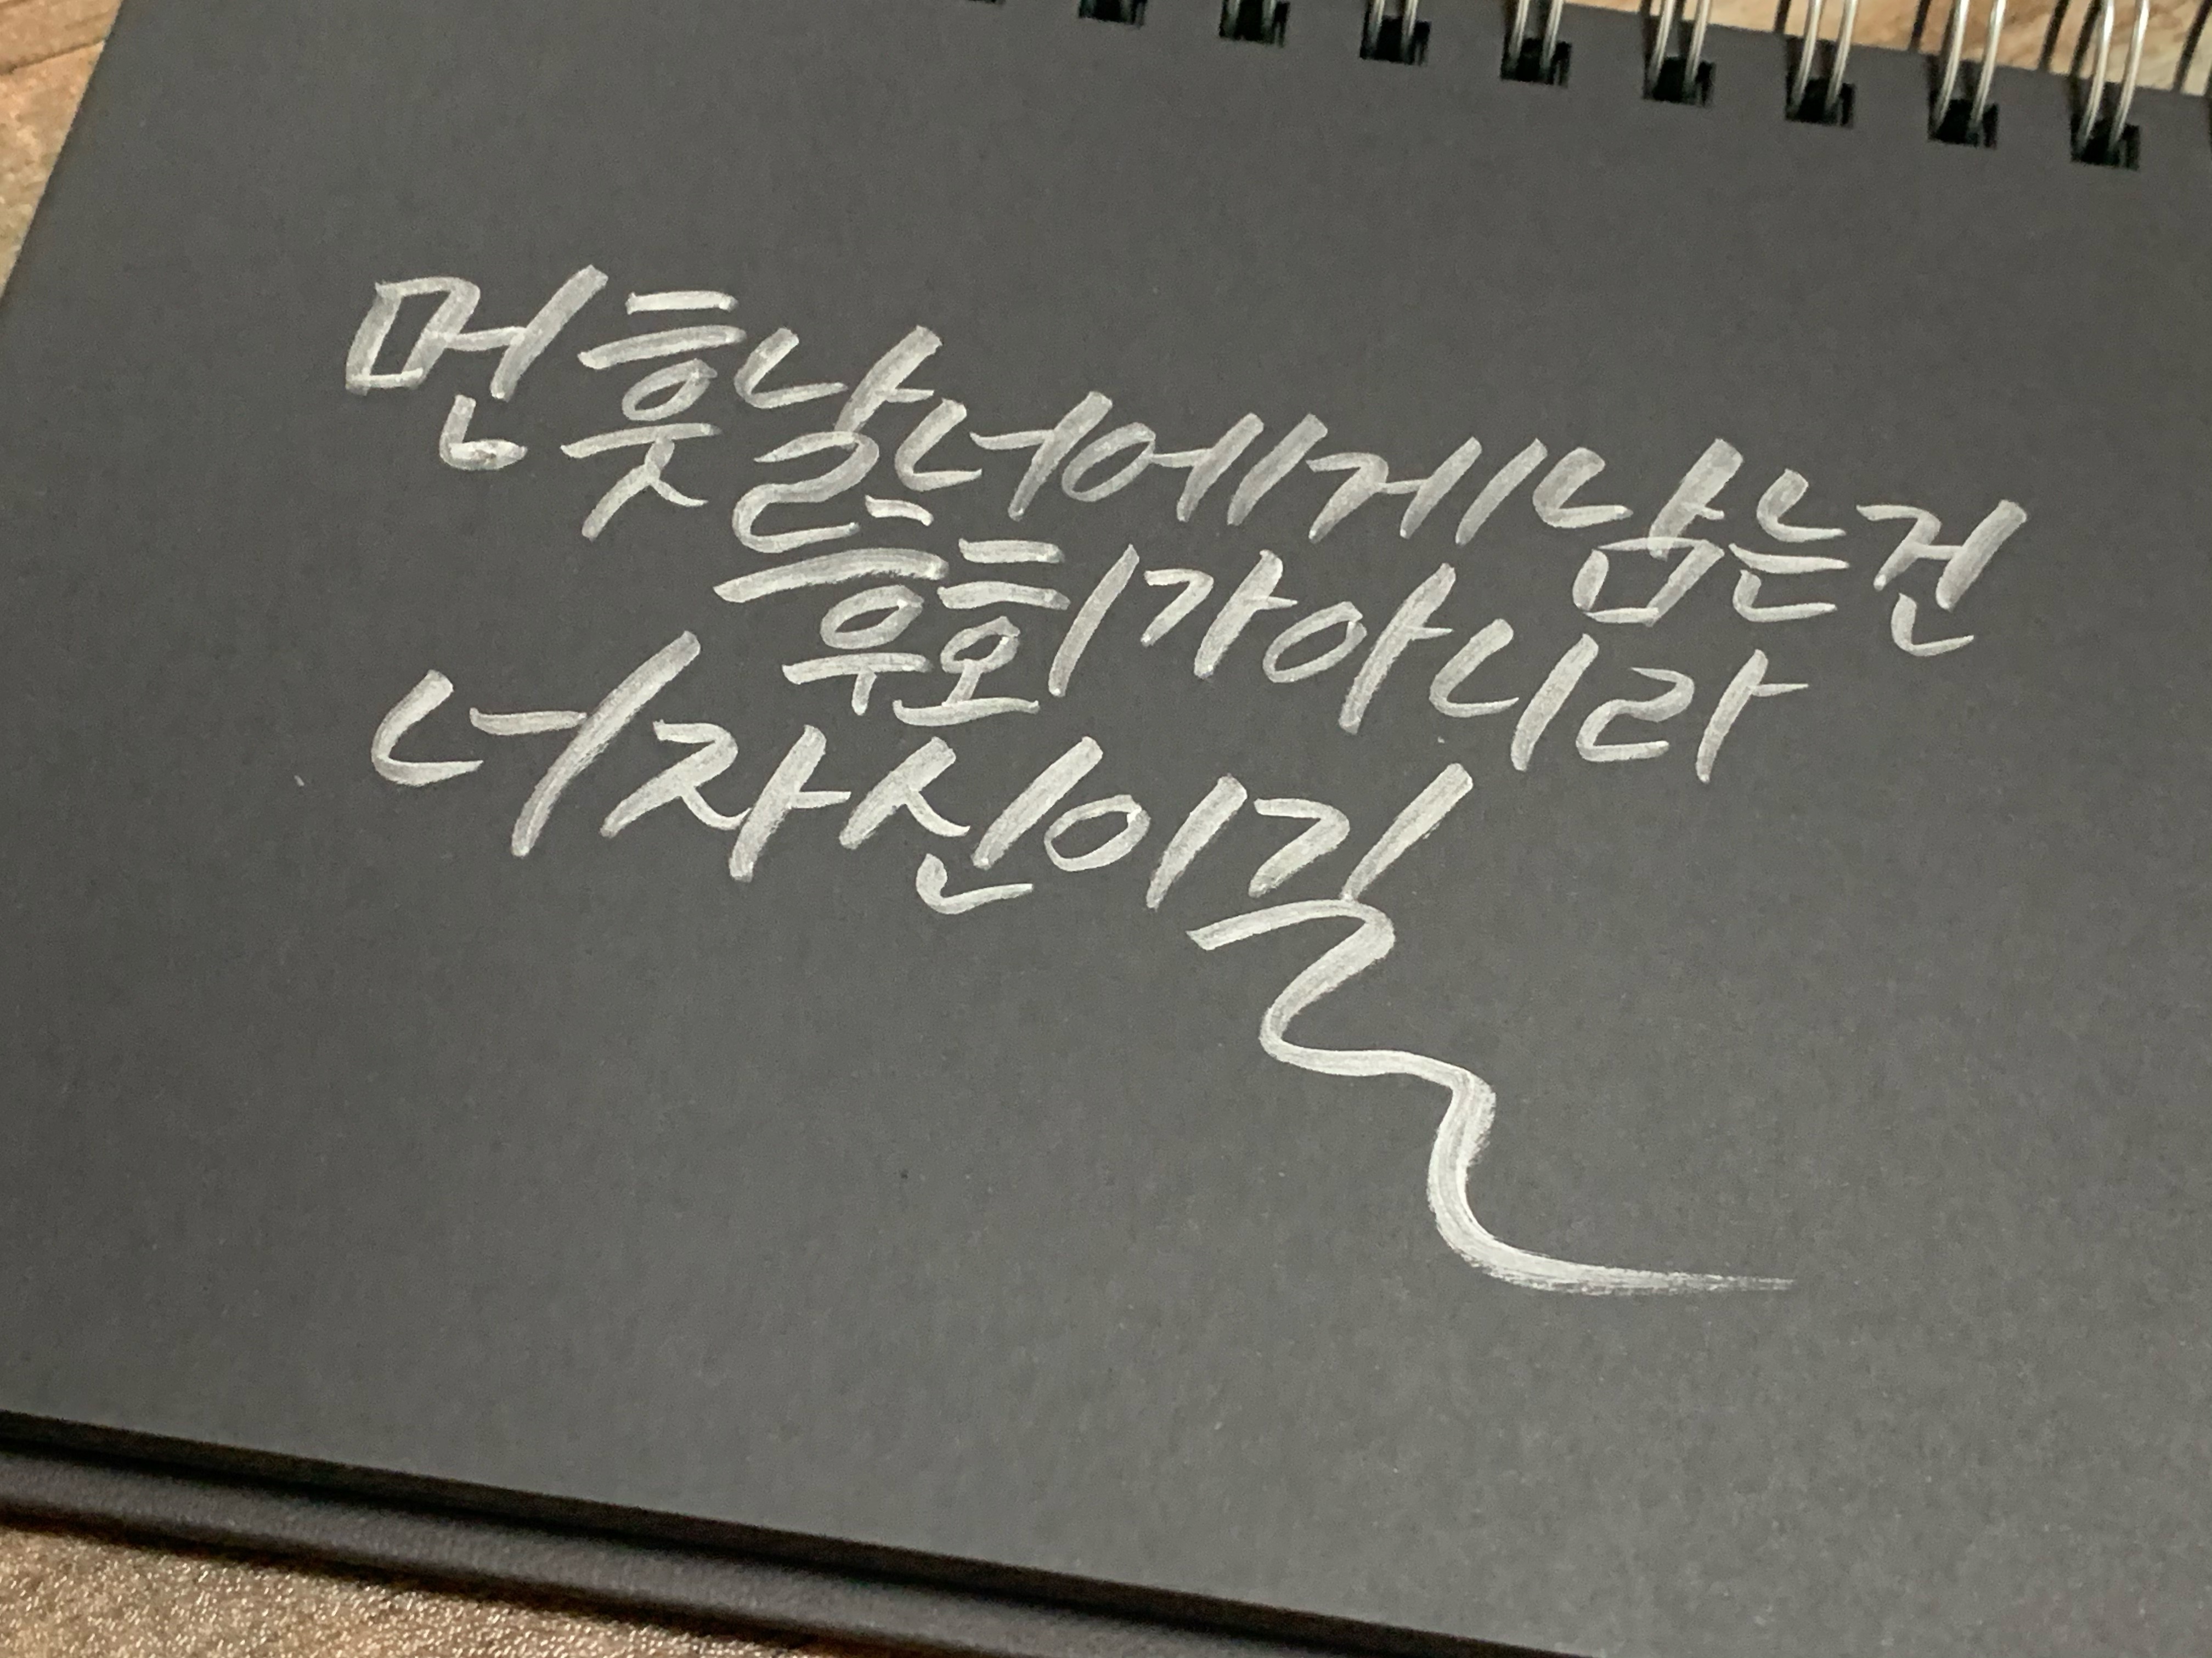 먼 훗날 너에게 남는 건
후회가 아니라
너 자신이길